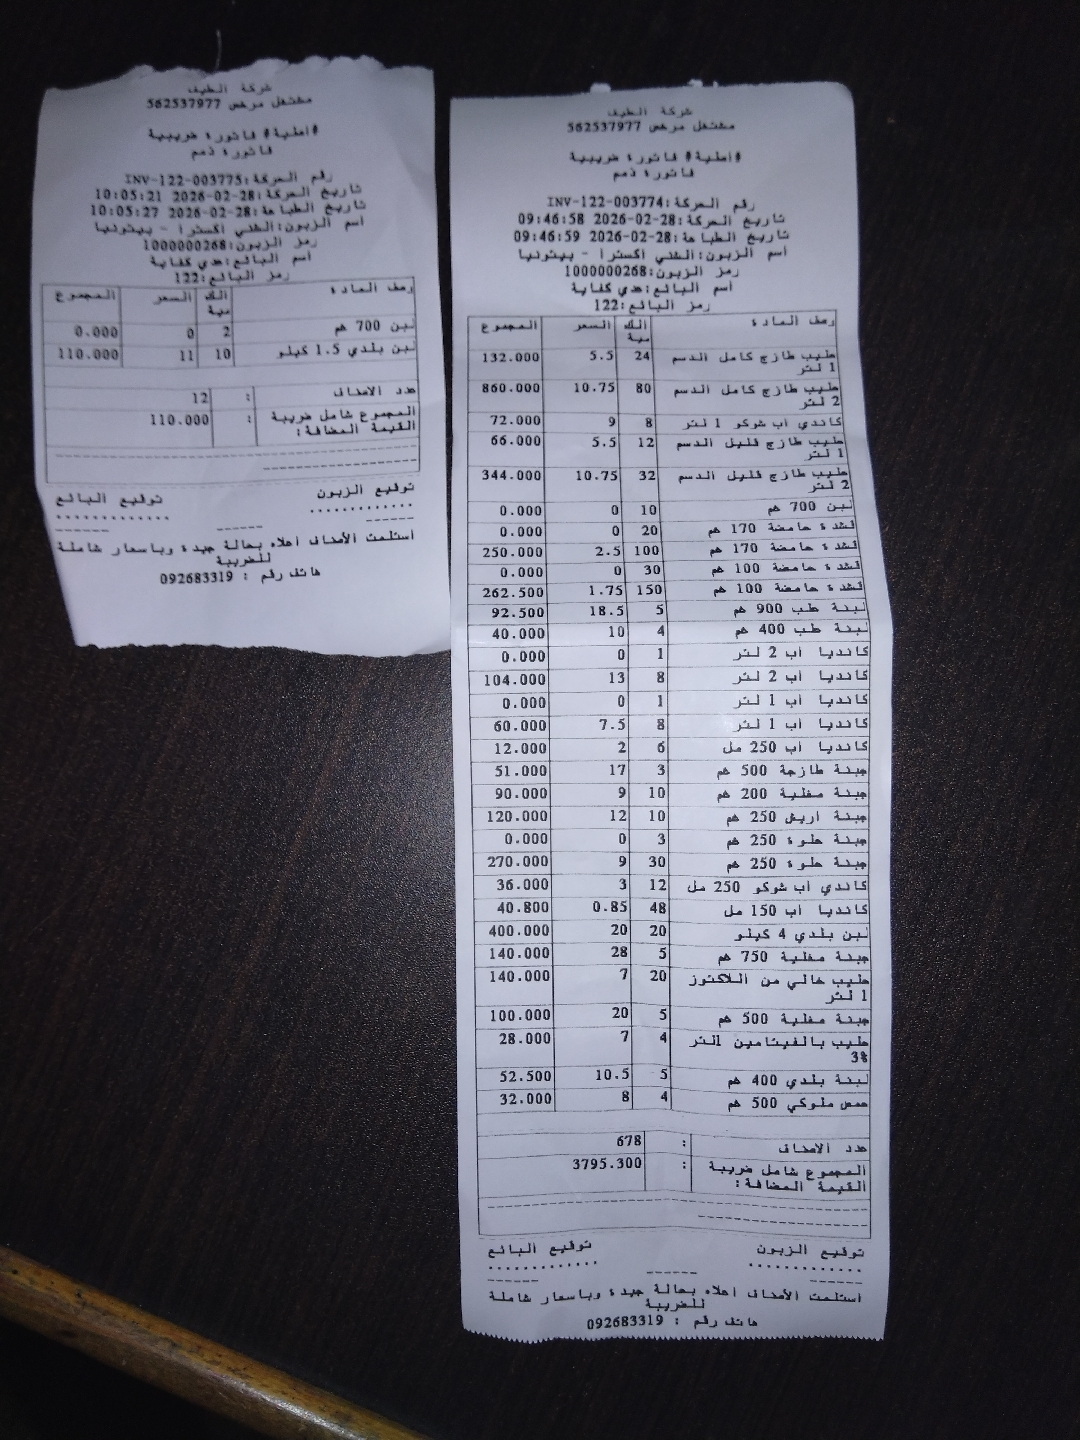 شركة الطيف
مشتغل مرخص 562537977
#اصلية# فاتورة ضريبية
فاتورة ذمم
رقم الحركة:INV-122-003775
تاريخ الحركة:28-02-2026 10:05:21
تاريخ الطباعة:28-02-2026 10:05:27
اسم الزبون:الشني اكسترا - بيتونيا
رمز الزبون:1000000268
اسم البائع:هدي كفاية
رمز البائع:122
وصف المادة الكمية السعر المجموع
لبن 700 غم 2 0 0.000
لبن بلدي 1.5 كيلو 10 11 110.000
عدد الاصناف : 12
المجموع شامل ضريبة : 110.000
القيمة المضافة:
توقيع الزبون توقيع البائع
استلمت الأصناف اعلاه بحالة جيدة وباسعار شاملة
للضريبة
هاتف رقم : 092683319
شركة الطيف
مشتغل مرخص 562537977
#اصلية# فاتورة ضريبية
فاتورة ذمم
رقم الحركة:INV-122-003774
تاريخ الحركة:28-02-2026 09:46:58
تاريخ الطباعة:28-02-2026 09:46:59
اسم الزبون:الشني اكسترا - بيتونيا
رمز الزبون:1000000268
اسم البائع:هدي كفاية
رمز البائع:122
وصف المادة الكمية السعر المجموع
حليب طازج كامل الدسم 24 5.5 132.000
1 لتر
حليب طازج كامل الدسم 80 10.75 860.000
2 لتر
كاندي اب شوكو 1 لتر 8 9 72.000
حليب طازج قليل الدسم 12 5.5 66.000
1 لتر
حليب طازج قليل الدسم 32 10.75 344.000
2 لتر
لبن 700 غم 10 0 0.000
قشدة حامضة 170 غم 20 0 0.000
قشدة حامضة 170 غم 100 2.5 250.000
قشدة حامضة 100 غم 30 0 0.000
قشدة حامضة 100 غم 150 1.75 262.500
لبنة طب 900 غم 5 18.5 92.500
لبنة طب 400 غم 4 10 40.000
كانديا اب 2 لتر 1 0 0.000
كانديا اب 2 لتر 8 13 104.000
كانديا اب 1 لتر 1 0 0.000
كانديا اب 1 لتر 8 7.5 60.000
كانديا اب 250 مل 6 2 12.000
جبنة طازجة 500 غم 3 17 51.000
جبنة مغلية 200 غم 10 9 90.000
جبنة اريش 250 غم 10 12 120.000
جبنة حلوة 250 غم 3 0 0.000
جبنة حلوة 250 غم 30 9 270.000
كاندي اب شوكو 250 مل 12 3 36.000
كانديا اب 150 مل 48 0.85 40.800
لبن بلدي 4 كيلو 20 20 400.000
جبنة مغلية 750 غم 5 28 140.000
حليب خالي من اللاكتوز 20 7 140.000
1 لتر
جبنة مغلية 500 غم 5 20 100.000
حليب بالفيتامين 1لتر 4 7 28.000
3%
لبنة بلدي 400 غم 5 10.5 52.500
حمص ملوكي 500 غم 4 8 32.000
عدد الاصناف : 678
المجموع شامل ضريبة : 3795.300
القيمة المضافة:
توقيع الزبون توقيع البائع
استلمت الأصناف اعلاه بحالة جيدة وباسعار شاملة
للضريبة
هاتف رقم : 092683319